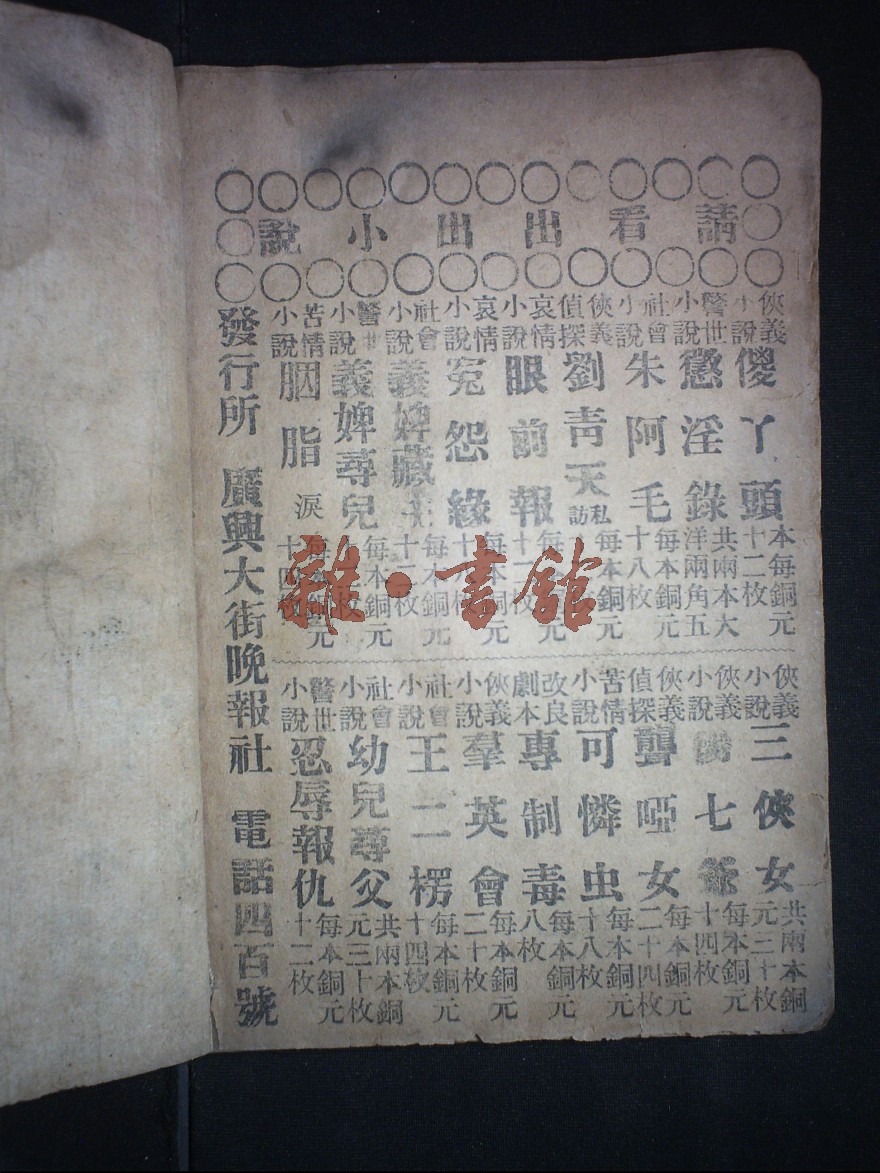 請看出出小說
俠義小說 傻丫頭 本每銅元十二枚
警世小說 懲淫錄 共兩本大洋兩角五
社會小說 朱阿毛 每本銅元十八枚
俠義偵探 劉青天私訪 每本銅元
哀情小說 眼前報 每本銅元十二枚
哀情小說 冤怨緣 每本銅元十八枚
社會小說 義婢藏 每本銅元十二枚
警世小說 義婢尋兒 每本銅元十二枚
苦情小說 胭脂淚 每本銅元十四枚
俠義小說 三俠女 共兩本銅元三十枚
俠義小說 七爺 每本銅元十四枚
俠義偵探 聾啞女 每本銅元二十四枚
苦情小說 可憐虫 每本銅元十八枚
改良劇本 專制毒 每本銅元八枚
俠義小說 羣英會 每本銅元二十枚
社會小說 王二楞 每本銅元十四枚
社會小說 幼兒尋父 共兩本銅元三十枚
警世小說 忍辱報仇 每本銅元十二枚
發行所 廣興大街晚報社 電話四百號
雜·書館